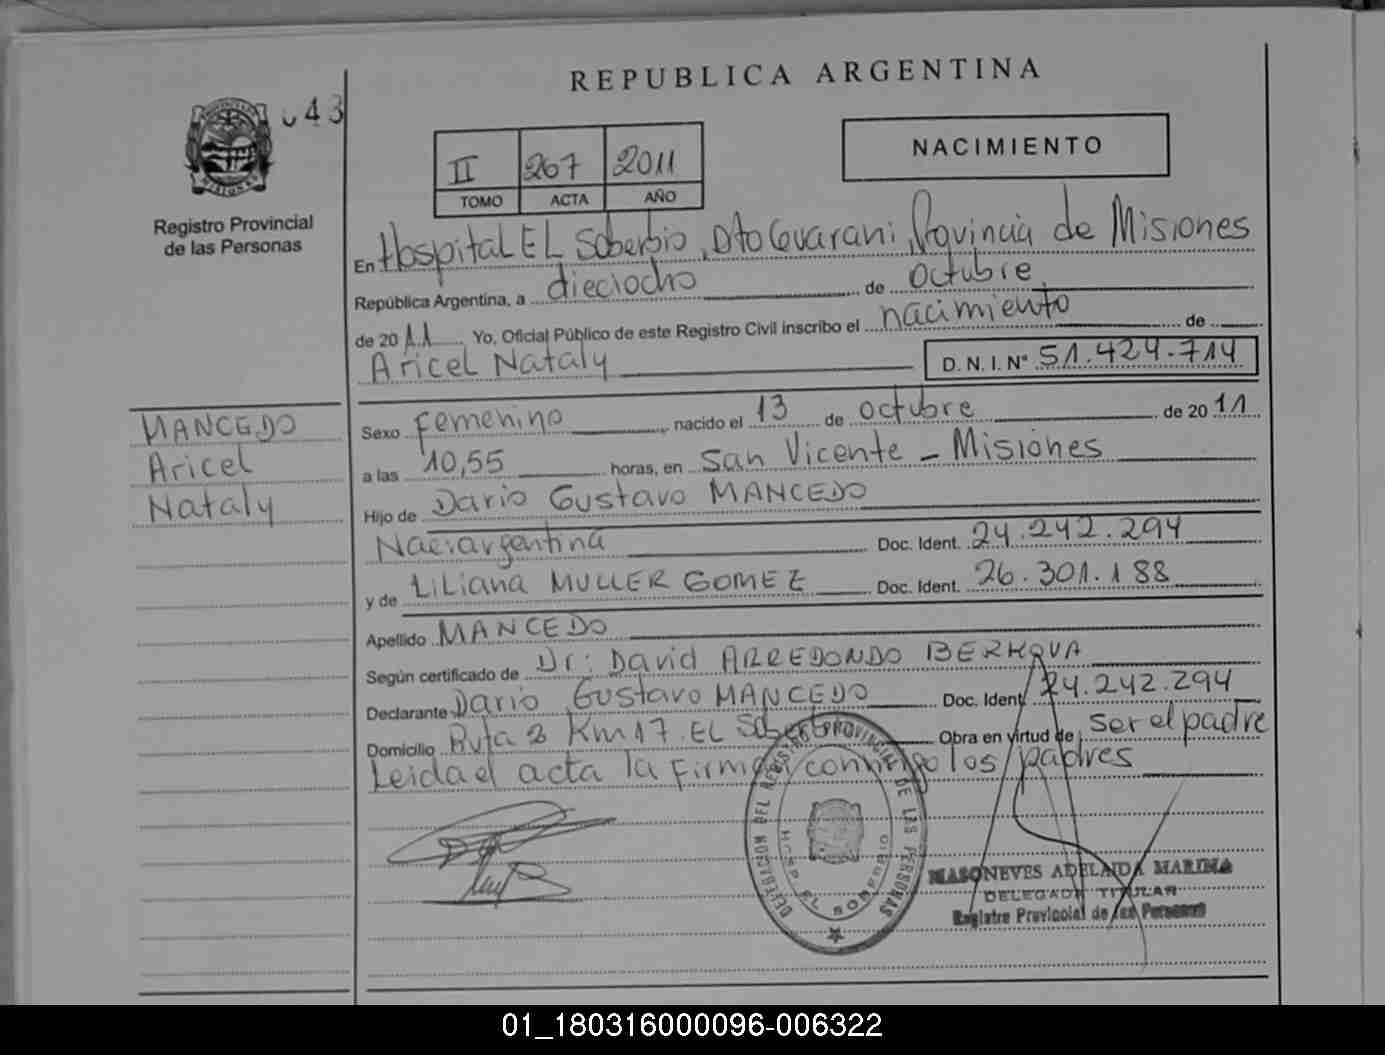 REPUBLICA ARGENTINA
043
II 267 2011
TOMO ACTA AÑO
NACIMIENTO
Registro Provincial
de las Personas
En Hospital EL Soberbio, Dto Guarani, Provincia de Misiones
República Argentina, a dieciocho de octubre
de 2011 Yo, Oficial Público de este Registro Civil inscribo el nacimiento de
Aricel Nataly D.N.I. Nº 51.424.714
MANCEDO
Aricel
Nataly
Sexo Femenino nacido el 13 de octubre de 2011
a las 10,55 horas, en San Vicente - Misiones
Hijo de Dario Gustavo MANCEDO
Nac: argentina Doc. Ident. 24.242.294
y de Liliana MULLER GOMEZ Doc. Ident. 26.301.188
Apellido MANCEDO
Según certificado de Dr: David ARREDONDO BERKOVA
Declarante Dario Gustavo MANCEDO Doc. Ident. 24.242.294
Domicilio Ruta 2 Km 17. EL Soberbio Obra en virtud de ser el padre
Leida el acta la firman conmigo los padres
DELEGACION DEL REGISTRO PROVINCIAL DE LAS PERSONAS
HOSP. EL SOBERBIO
MASONEVES ADELAIDA MARINA
DELEGADA TITULAR
Registro Provincial de las Personas
01_180316000096-006322